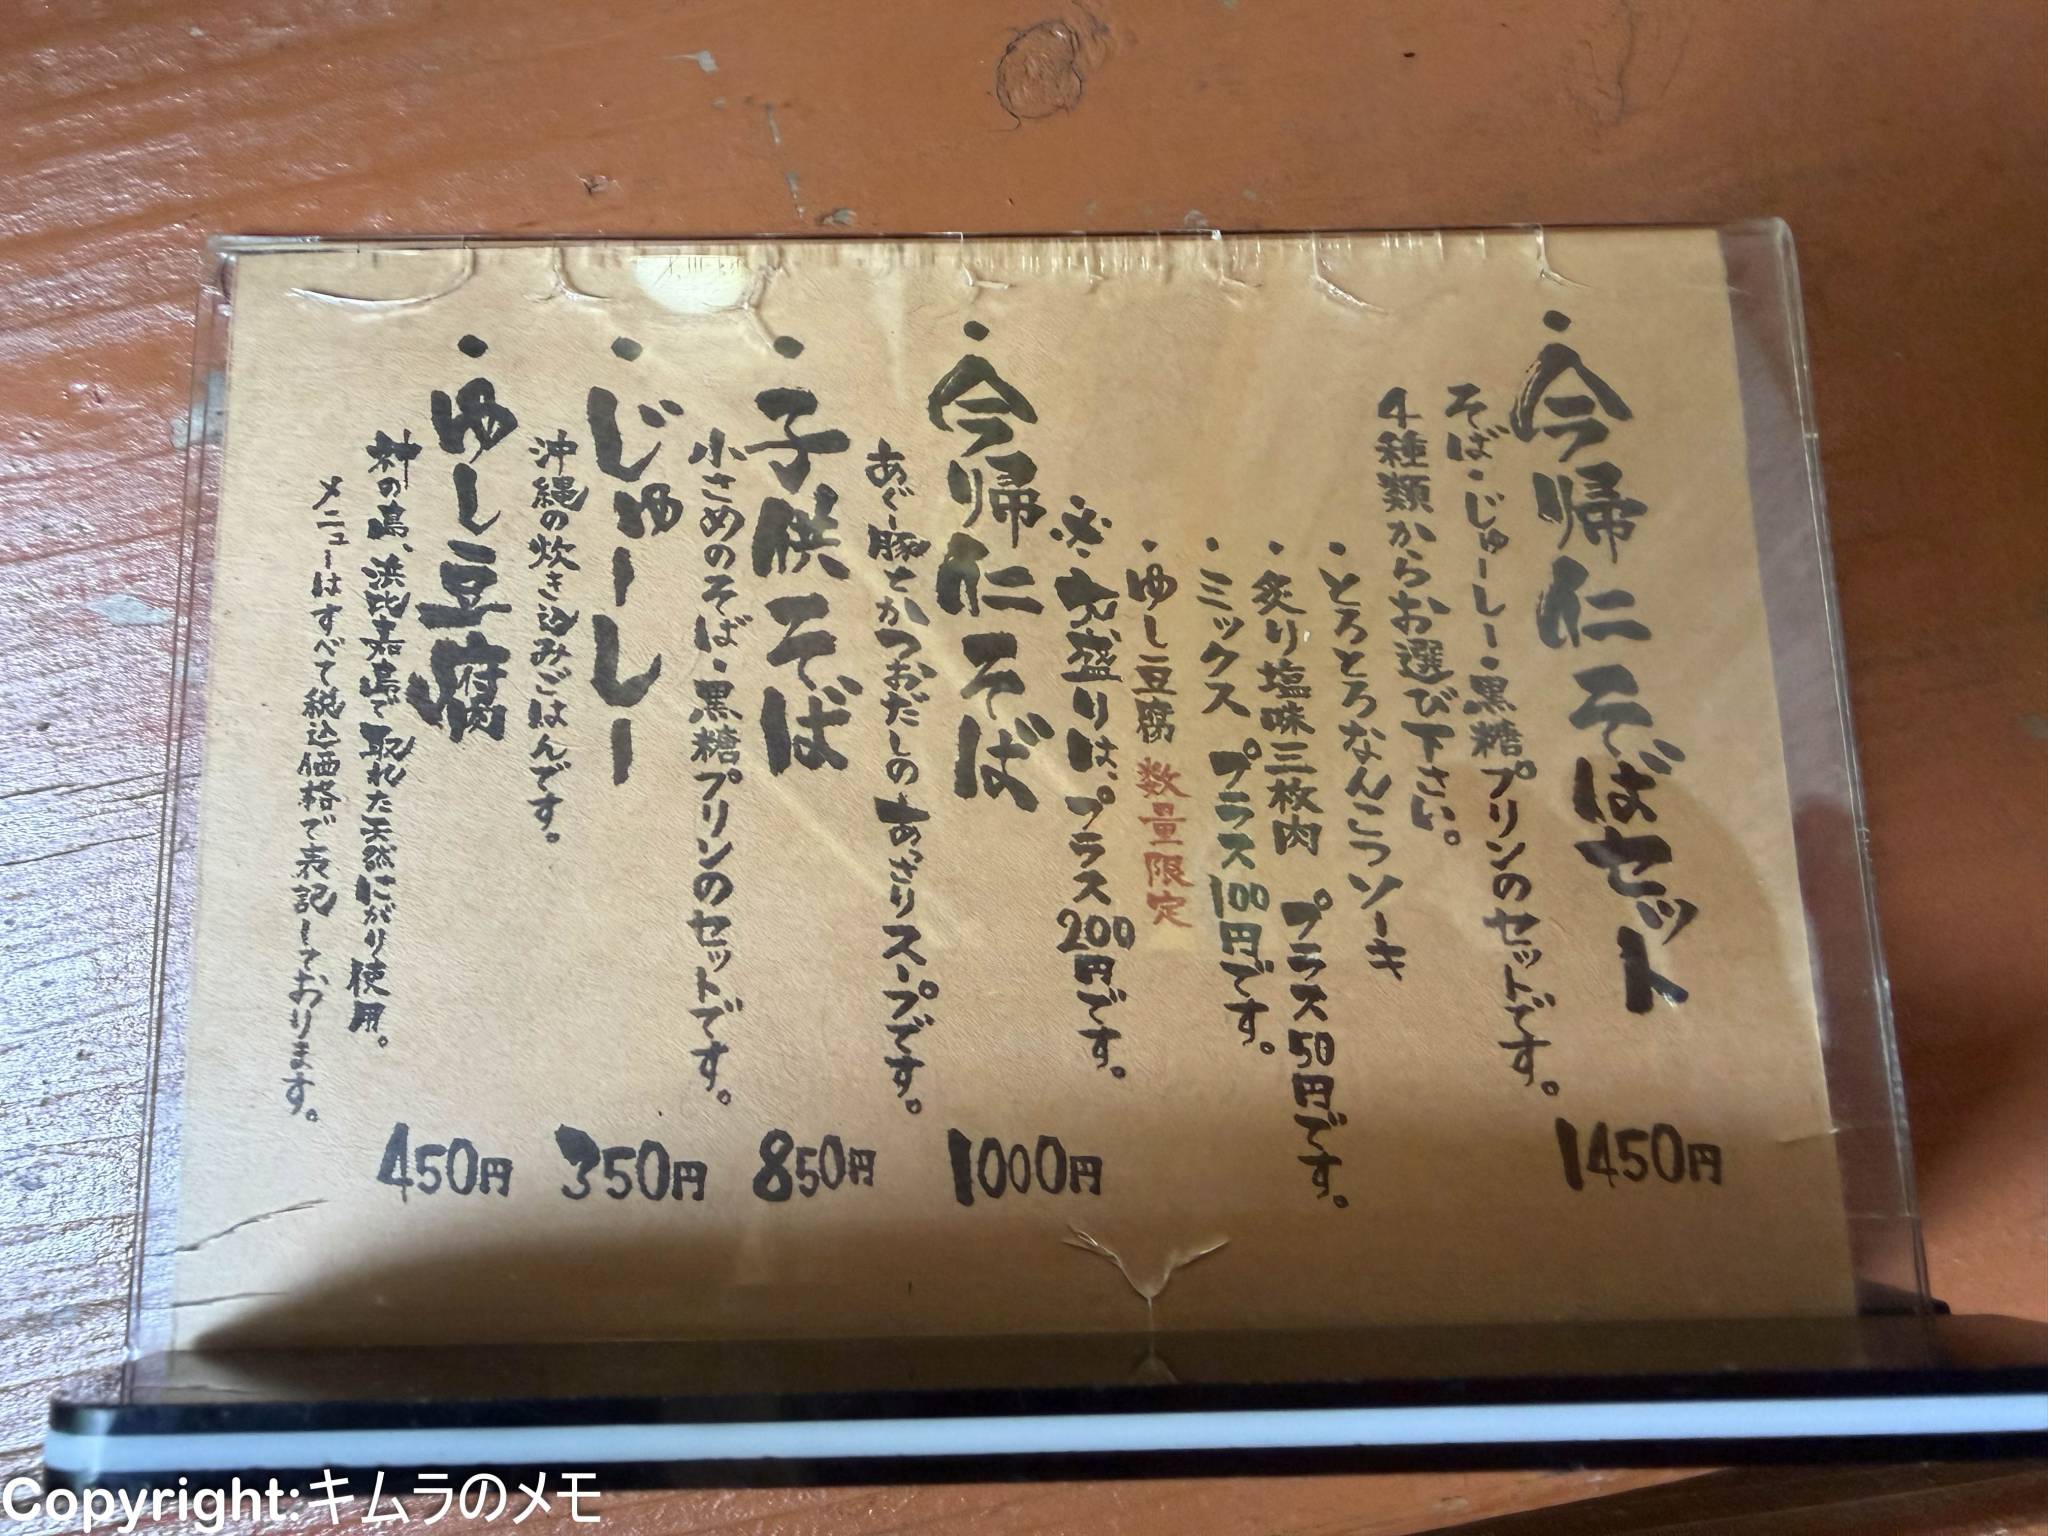 ・今帰仁そばセット 1450円
そば・じゅーしー・黒糖プリンのセットです。
4種類からお選び下さい。
・とろとろなんこつソーキ
・炙り塩味三枚肉 プラス50円です。
・ミックス プラス100円です。
・ゆし豆腐 数量限定
※大盛りは、プラス200円です。
・今帰仁そば 1000円
あぐー豚とかつおだしのあっさりスープです。
・子供そば 850円
小さめのそば・黒糖プリンのセットです。
・じゅーしー 350円
沖縄の炊き込みごはんです。
・ゆし豆腐 450円
神の島、浜比嘉島で取れた天然にがり使用。
メニューはすべて税込価格で表記しております。
Copyright:キムラのメモ